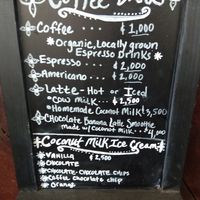 Coffee Bar
Coffee .... ¢1,000
*Organic, Locally grown
Espresso Drinks*
Espresso .... ¢2,000
Americano .... ¢2,000
Latte - Hot or Iced
*Cow milk.... ¢2,500
*Homemade Coconut Milk ¢3,500
Chocolate Banana Latte Smoothie
made w/ Coconut milk. ..¢4,000
Coconut Milk Ice Cream
Vanilla ¢2,500
Chocolate
Chocolate-Chocolate Chips
Coffee Chocolate chip
Orange